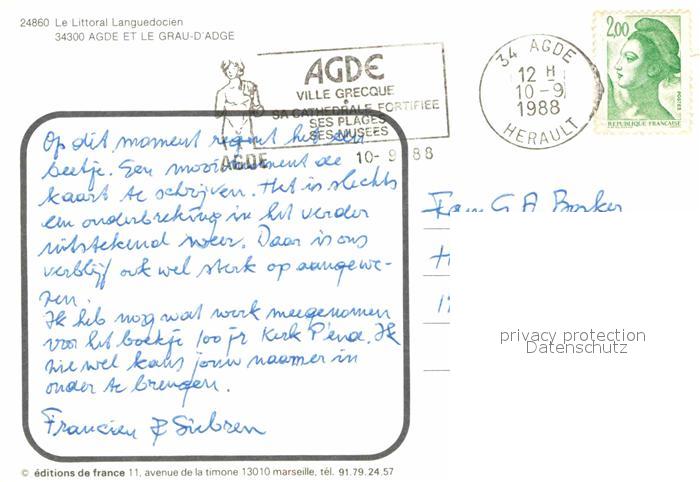 24860 Le Littoral Languedocien
34300 AGDE ET LE GRAU-D'ADGE
AGDE
VILLE GRECQUE
SA CATHEDRALE FORTIFIEE
SES PLAGES
SES MUSEES
AGDE
10-9 88
34 AGDE
12 H
10-9
1988
HERAULT
2,00
POSTES
REPUBLIQUE FRANCAISE
Op dit moment regent het een
beetje. Een mooi moment de
kaart te schrijven. Het is slechts
een onderbreking in het verder
uitstekend weer. Daar is ons
verblijf ook wel sterk op aangewe-
zen.
Ik heb nog wat werk meegenomen
voor het boekje 100 jr Kerk P'end. Ik
zie wel kans jouw naam er in
onder te brengen.
Francien & Siebren
Fam G A Bosker
privacy protection
Datenschutz
© éditions de france 11, avenue de la timone 13010 marseille, tél. 91.79.24.57